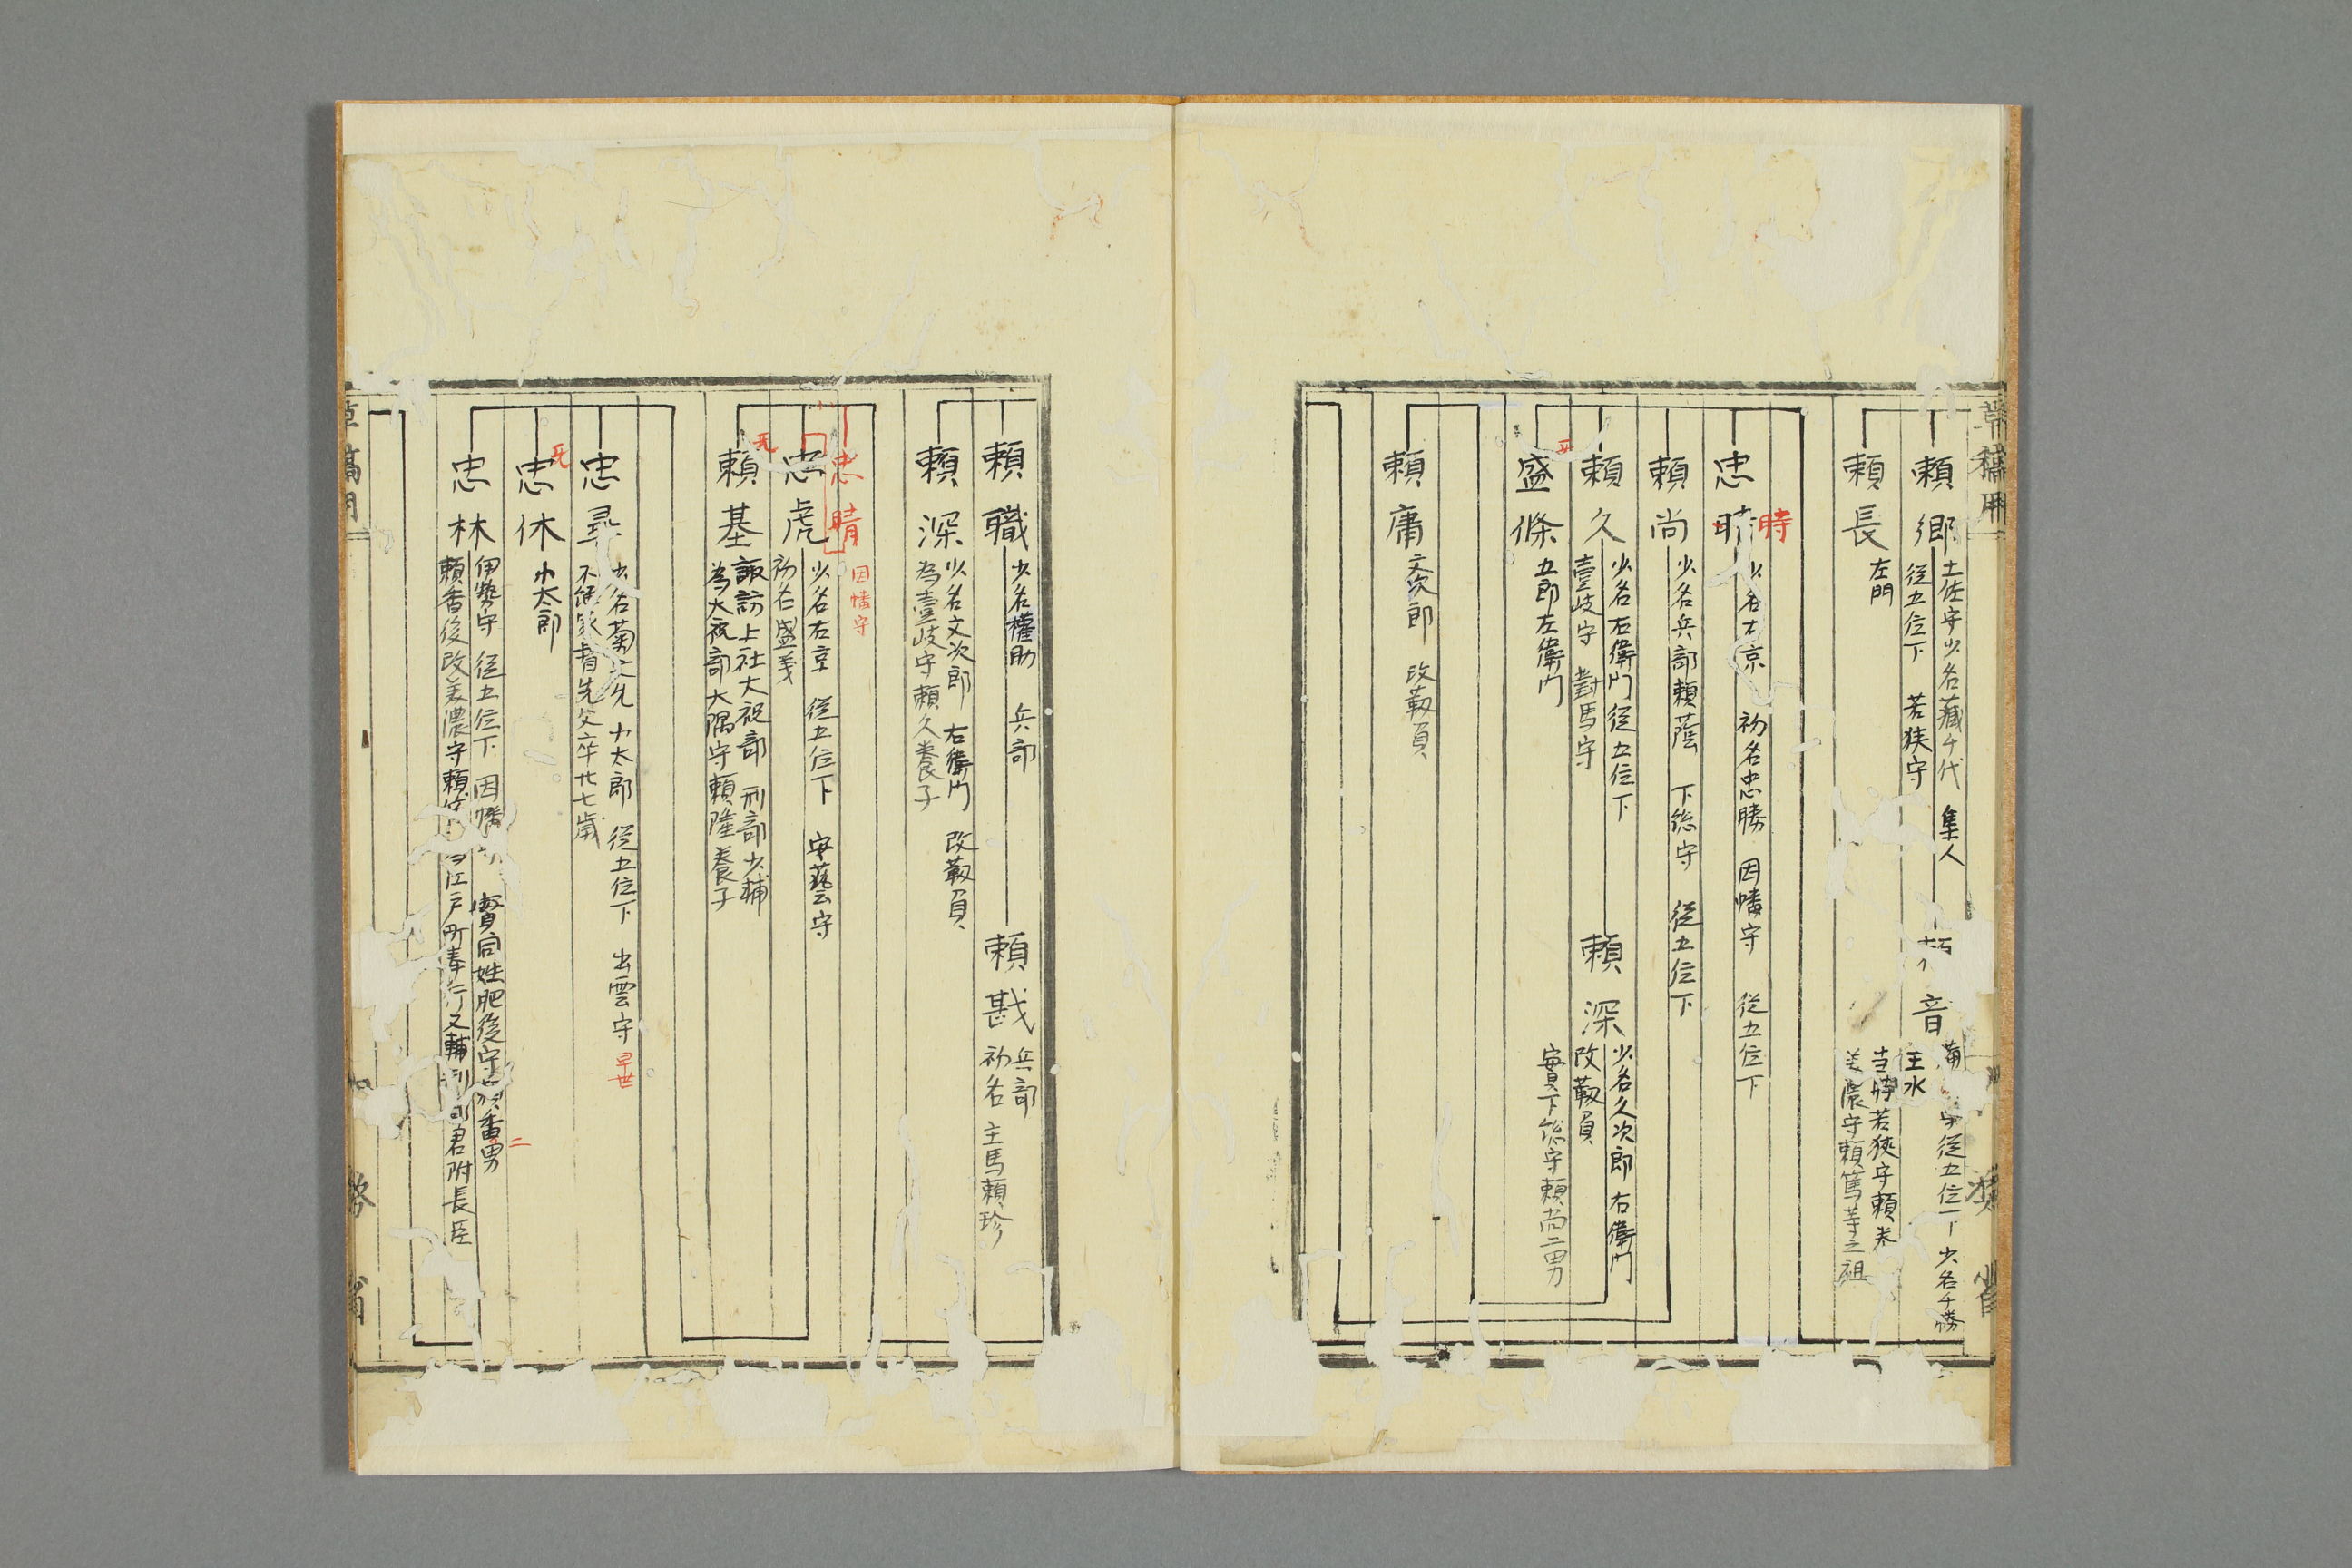 草稿用
頼郷
土佐守 少名藏千代 隼人
従五位下 若狭守
音
守 従五位下 少名千勝
主水
当時若狭守頼
美濃守頼篤等之祖
頼長
左門
時
忠時
少名右京 初名忠勝 因幡守 従五位下
頼尚
少名兵部頼蔭 下総守 従五位下
頼久
少名右衛門 従五位下
壹岐守 對馬守
頼深
少名久次郎 右衛門
改靱負
實下総守頼尚二男
盛條
五郎左衛門
頼庸
文次郎 改靱負
頼職
少名權助 兵部
頼戡
兵部
初名主馬頼珍
頼深
少名文次郎 右衛門 改靱負
為壹岐守頼久養子
忠晴
因幡守
忠虎
少名右京 従五位下 安藝守
初名盛義
頼基
諏訪上社大祝部 刑部少輔
為大祝部大隅守頼隆養子
忠尋
少名菊之允 小太郎 従五位下 出雲守 早世
不継家督先父卒廿七歳
忠休
小太郎
忠林
伊勢守 従五位下 因幡 實同姓肥後守頼香二男
頼香後改美濃守頼 江戸町奉行又輔 君附長臣
草稿用
省